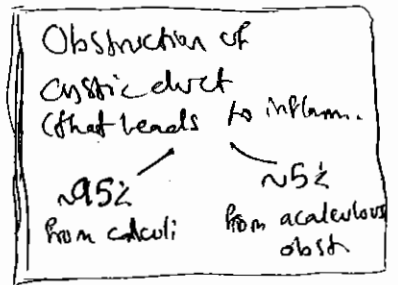 Obstruction of
cystic duct
(that leads to inflam.
~95%
from calculi
~5%
from acalculous
obst